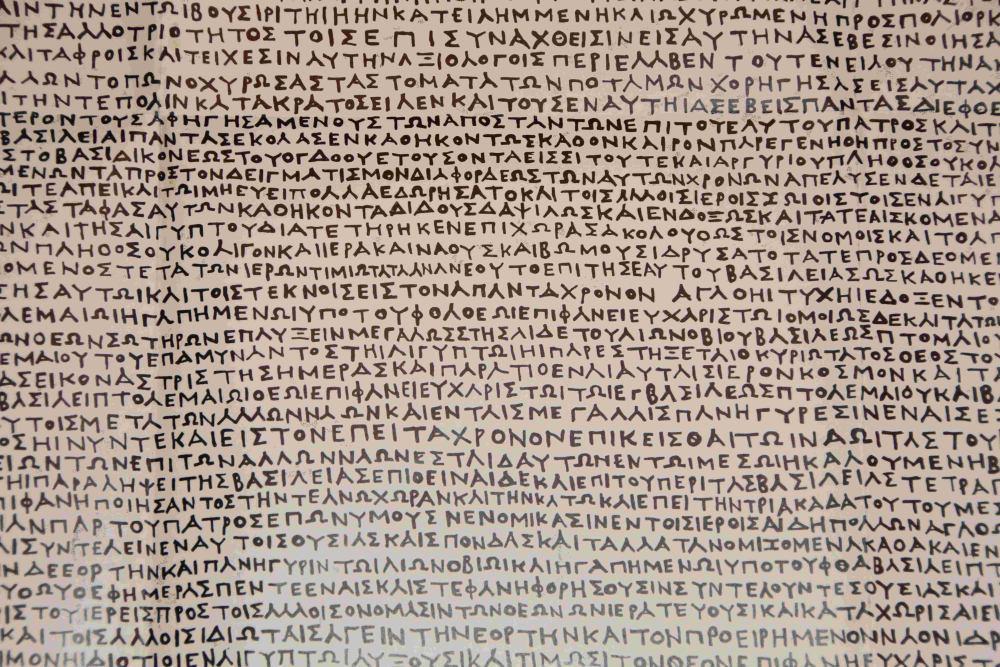 ΛΙΝΤΗΝΕΝΤΩΙΒΟΥΣΙΡΙΤΗΙΗΗΝΚΑΤΕΙΛΗΜΜΕΝΗΚΑΙΩΧΥΡΩΜΕΝΗΠΡΟΣΠΟΛΙΟΡΚ
ΤΗΣΑΛΛΟΤΡΙΟΤΗΤΟΣΤΟΙΣΕΠΙΣΥΝΑΧΘΕΙΣΙΝΕΙΣΑΥΤΗΝΑΣΕΒΕΣΙΝΟΙΗΣΑ
ΚΑΙΤΑΦΡΟΙΣΚΑΙΤΕΙΧΕΣΙΝΑΥΤΗΝΑΞΙΟΛΟΓΟΙΣΠΕΡΙΕΛΑΒΕΝΤΟΥΤΕΝΕΙΛΟΥΤΗΝΑΝ
ΑΛΩΝΤΟΠΩΝΟΧΥΡΩΣΑΣΤΑΣΤΟΜΑΤΑΤΩΝΠΟΤΑΜΩΝΧΟΡΗΓΗΣΑΣΕΙΣΑΥΤΑΧ
ΙΤΗΝΤΕΠΟΛΙΝΚΑΤΑΚΡΑΤΟΣΕΙΛΕΝΚΑΙΤΟΥΣΕΝΑΥΤΗΙΑΣΕΒΕΙΣΠΑΝΤΑΣΔΙΕΦΘΕ
ΤΕΡΟΝΤΟΥΣΑΦΗΓΗΣΑΜΕΝΟΥΣΤΩΝΑΠΟΣΤΑΝΤΩΝΕΠΙΤΟΥΕΑΥΤΟΥΠΑΤΡΟΣΚΑΙΤ
ΒΑΣΙΛΕΙΑΙΠΑΝΤΑΣΕΚΟΛΑΣΕΝΚΑΘΗΚΟΝΤΩΣΚΑΘΟΝΚΑΙΡΟΝΠΑΡΕΓΕΝΗΘΗΠΡΟΣΤΟΣΥΝ
ΣΤΟΒΑΣΙΛΙΚΟΝΕΩΣΤΟΥΟΓΔΟΟΥΕΤΟΥΣΟΝΤΑΕΙΣΣΙΤΟΥΤΕΚΑΙΑΡΓΥΡΙΟΥΠΛΗΘΟΣΟΥΚΟΛ
ΜΕΝΩΝΤΑΠΡΟΣΤΟΝΔΕΙΓΜΑΤΙΣΜΟΝΔΙΑΦΟΡΑΕΩΣΤΩΝΑΥΤΩΝΧΡΟΝΩΝΑΠΕΛΥΣΕΝΔΕΤΑΙΕ
ΩΙΤΕΑΠΕΙΚΑΙΤΩΙΜΗΕΥΕΙΠΟΛΛΑΕΔΩΡΗΣΑΤΟΚΑΙΤΟΙΣΑΛΛΟΙΣΙΕΡΟΙΣΖΩΙΟΙΣΤΟΙΣΕΝΑΙΓΥΠ
ΤΑΣΤΑΦΑΣΑΥΤΩΝΚΑΘΗΚΟΝΤΑΔΙΔΟΥΣΔΑΨΙΛΩΣΚΑΙΕΝΔΟΞΩΣΚΑΙΤΑΤΕΛΙΣΚΟΜΕΝΑ
ΝΚΑΙΤΗΣΑΙΓΥΠΤΟΥΔΙΑΤΕΤΗΡΗΚΕΝΕΠΙΧΩΡΑΣΑΚΟΛΟΥΘΩΣΤΟΙΣΝΟΜΟΙΣΚΑΙΤΟΑΠ
ΩΝΠΛΗΘΟΣΟΥΚΟΛΙΓΟΝΚΑΙΙΕΡΑΚΑΙΝΑΟΥΣΚΑΙΒΩΜΟΥΣΙΔΡΥΣΑΤΟΤΑΤΕΠΡΟΣΔΕΟΜΕΝ
ΟΜΕΝΟΣΤΕΤΑΤΩΝΙΕΡΩΝΤΙΜΙΩΤΑΤΑΑΝΑΝΕΟΥΤΟΕΠΙΤΗΣΕΑΥΤΟΥΒΑΣΙΛΕΙΑΣΩΣΚΑΘΗΚΕΝ
ΣΗΣΑΥΤΩΙΚΑΙΤΟΙΣΤΕΚΝΟΙΣΕΙΣΤΟΝΑΠΑΝΤΑΧΡΟΝΟΝ ΑΓΑΘΗΙΤΥΧΗΙΕΔΟΞΕΝΤΟ
ΛΕΜΑΙΩΙΗΓΑΠΗΜΕΝΩΙΥΠΟΤΟΥΦΘΑΘΕΩΙΕΠΙΦΑΝΕΙΕΥΧΑΡΙΣΤΩΙΟΜΟΙΩΣΔΕΚΑΙΤΑΤΩΝ
ΩΝΘΕΩΝΣΩΤΗΡΩΝΕΠΑΥΞΕΙΝΜΕΓΑΛΩΣΣΤΗΣΑΙΔΕΤΟΥΑΙΩΝΟΒΙΟΥΒΑΣΙΛΕΩΣΠΤΟΛΕΜΑΙΟΥ
ΕΜΑΙΟΥΤΟΥΕΠΑΜΥΝΑΝΤΟΣΤΗΙΑΙΓΥΠΤΩΙΗΙΠΑΡΕΣΤΗΞΕΤΑΙΟΚΥΡΙΩΤΑΤΟΣΘΕΟΣΤΟΥ
ΑΣΕΙΚΟΝΑΣΤΡΙΣΤΗΣΗΜΕΡΑΣΚΑΙΠΑΡΑΤΙΘΕΝΑΙΑΥΤΑΙΣΙΕΡΟΝΚΟΣΜΟΝΚΑΙΤΑ
ΒΑΣΙΛΕΙΠΤΟΛΕΜΑΙΩΙΘΕΩΙΕΠΙΦΑΝΕΙΕΥΧΑΡΙΣΤΩΙΤΩΙΕΓΒΑΣΙΛΕΩΣΠΤΟΛΕΜΑΙΟΥΚΑΙΒ
ΥΤΟΙΣΜΕΤΑΤΩΝΑΛΛΩΝΝΑΩΝΚΑΙΕΝΤΑΙΣΜΕΓΑΛΑΙΣΠΑΝΗΓΥΡΕΣΙΝΕΝΑΙΣΕΞ
ΟΣΗΙΝΥΝΤΕΚΑΙΕΙΣΤΟΝΕΠΕΙΤΑΧΡΟΝΟΝΕΠΙΚΕΙΣΘΑΙΤΩΙΝΑΩΙΤΑΣΤΟΥ
ΕΙΩΝΤΩΝΕΠΙΤΩΝΑΛΛΩΝΝΑΩΝΕΣΤΑΙΔΑΥΤΩΝΕΝΤΩΙΜΕΣΩΙΗΚΑΛΟΥΜΕΝΗΒ
ΤΗΙΠΑΡΑΛΗΨΕΙΤΗΣΒΑΣΙΛΕΙΑΣΕΠΙΘΕΙΝΑΙΔΕΚΑΙΕΠΙΤΟΥΠΕΡΙΤΑΣΒΑΣΙΛΕΙΑΣΤΕΤΡΑΓ
ΠΙΦΑΝΗΠΟΙΗΣΑΝΤΟΣΤΗΝΤΕΑΝΩΧΩΡΑΝΚΑΙΤΗΝΚΑΤΩΚΑΙΕΠΕΙΤΗΝΤΡΙΑΚΑΔΑΤΟΥΤΟΥΜΕΣ
ΙΑΝΠΑΡΤΟΥΠΑΤΡΟΣΕΠΩΝΥΜΟΥΣΝΕΝΟΜΙΚΑΣΙΝΕΝΤΟΙΣΙΕΡΟΙΣΑΙΔΗΠΟΛΛΩΝΑΓΑΘΩ
ΑΙΣΥΝΤΕΛΕΙΝΕΝΑΥΤΟΙΣΟΥΣΙΑΣΚΑΙΣΠΟΝΔΑΣΚΑΙΤΑΛΛΑΤΑΝΟΜΙΖΟΜΕΝΑΚΑΘΑΚΑΙΕΝ
ΙΝΔΕΕΟΡΤΗΝΚΑΙΠΑΝΗΓΥΡΙΝΤΩΙΑΙΩΝΟΒΙΩΙΚΑΙΗΓΑΠΗΜΕΝΩΙΥΠΟΤΟΥΦΘΑΒΑΣΙΛΕΙΠΤ
ΥΘΩΥΘΕΦΗΜΕΡΑΣΠΕΝΤΕΕΝΑΙΣΚΑΙΣΤΕΦΑΝΗΦΟΡΗΣΟΥΣΙΝΣΥΝΤΕΛΟΥΝΤΕΣΟΥΣΙΑΣΚΑΙ
ΡΙΣΤΟΥΙΕΡΕΙΣΠΡΟΣΤΟΙΣΑΛΛΟΙΣΟΝΟΜΑΣΙΝΤΩΝΘΕΩΝΩΝΙΕΡΑΤΕΥΟΥΣΙΚΑΙΚΑΤΑΧΩΡΙΣΑΙΕΙ
ΚΑΙΤΟΙΣΑΛΛΟΙΣΙΔΙΩΤΑΙΣΑΓΕΙΝΤΗΝΕΟΡΤΗΝΚΑΙΤΟΝΠΡΟΕΙΡΗΜΕΝΟΝΝΑΟΝΙΔΡ
ΙΜΟΝΗΙΔΙΟΤΙΟΙΕΝΑΙΓΥΠΤΩΙΑΥΞΟΥΣΙΚΑΙΤΙΜΩΣΙΤΟΝΘΕΟΝΕΠΙΦΑΝΗΕΥΧΑΡΙΣ